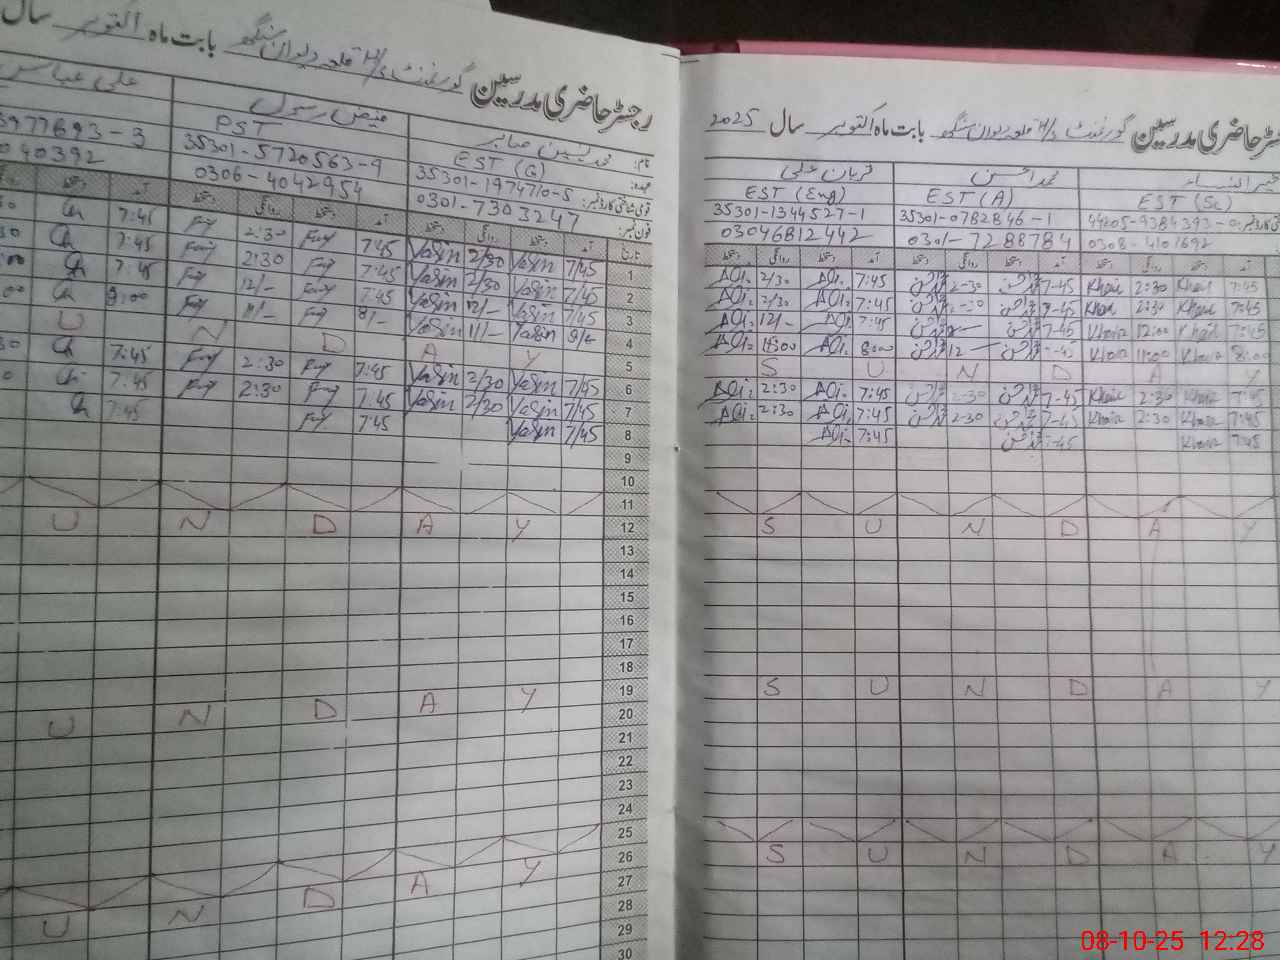 رجسٹر حاضری مدرسین گورنمنٹ H/S قلعہ دیوان سنگھ بابت ماہ اکتوبر سال
نام: محمد یٰسین صابر فیض رسول علی عباس
عہدہ: EST (G) PST
قومی شناختی کارڈ نمبر: 35301-1974710-5 35301-5720563-9 3977693-3
فون نمبر: 0301-7303247 0306-4042954 040392
تاریخ آمد دستخط روانگی دستخط آمد دستخط روانگی دستخط آمد دستخط
1 7/45 Yasin 2/30 Yasin 7:45 Fay 2:30 Fay 7:45
2 7/45 Yasin 2/30 Yasin 7:45 Fay 2:30 Fay 7:45
3 7/45 Yasin 12/- Yasin 7:45 Fay 12/- Fay 7:45
4 Yasin 11/- Yasin 8/- Fay 11/- Fay 8:00
5 U N D A Y
6 7/45 Yasin 2/30 Yasin 7:45 Fay 2:30 Fay 7:45
7 7/45 Yasin 2/30 Yasin 7:45 Fay 2:30 Fay 7:45
8 7/45 Yasin 7:45 Fay 7:45
9
10
11
12 U N D A Y
13
14
15
16
17
18
19 U N D A Y
20
21
22
23
24
25
26 U N D A Y
27
28
29
30
رجسٹر حاضری مدرسین گورنمنٹ H/S قلعہ دیوان سنگھ بابت ماہ اکتوبر سال 2025
قربان علی محمد احسن خیر النساء
EST (Eng) EST (A) EST (Sc)
35301-1344527-1 35301-0782846-1 44205-9384393-0
03046812442 0301-7288784 0308-4101692
دستخط روانگی دستخط آمد دستخط روانگی دستخط آمد دستخط روانگی دستخط آمد
AQi 2/30 AQi 7:45 2-30 7-45 Khair 2:30 Khair 7:45
AQi 2/30 AQi 7:45 7-45 Khair 2:30 Khair 7:45
AQi 12/- AQi 7:45 7-45 Khair 12:00 Khair 7:45
AQi 11:00 AQi 8:00 12 Khair 11:00 Khair 8:00
S U N D A Y
AQi 2:30 AQi 7:45 2-30 7-45 Khair 2:30 Khair 7:45
AQi 2:30 AQi 7:45 2-30 7-45 Khair 2:30 Khair 7:45
AQi 7:45 7-45 Khair 7:45
S U N D A Y
S U N D A Y
S U N D A Y
08-10-25 12:28